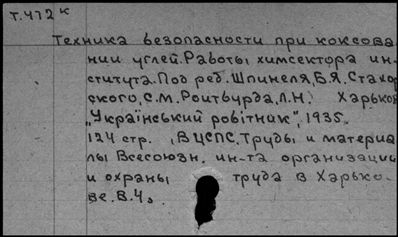 Т.472к
Техника безопасности при коксова-
нии углей. Работы химсектора ин-
ститута. Под ред. Шпинеля, Б.Я. Стахор-
ского, С.М. Ройтбурда, Л.Н. Харьков
„Український робітник", 1935.
124 стр. (ВЦСПС. Труды и материа-
лы Всесоюзн. ин-та организации
и охраны труда в Харько-
ве. В.4).